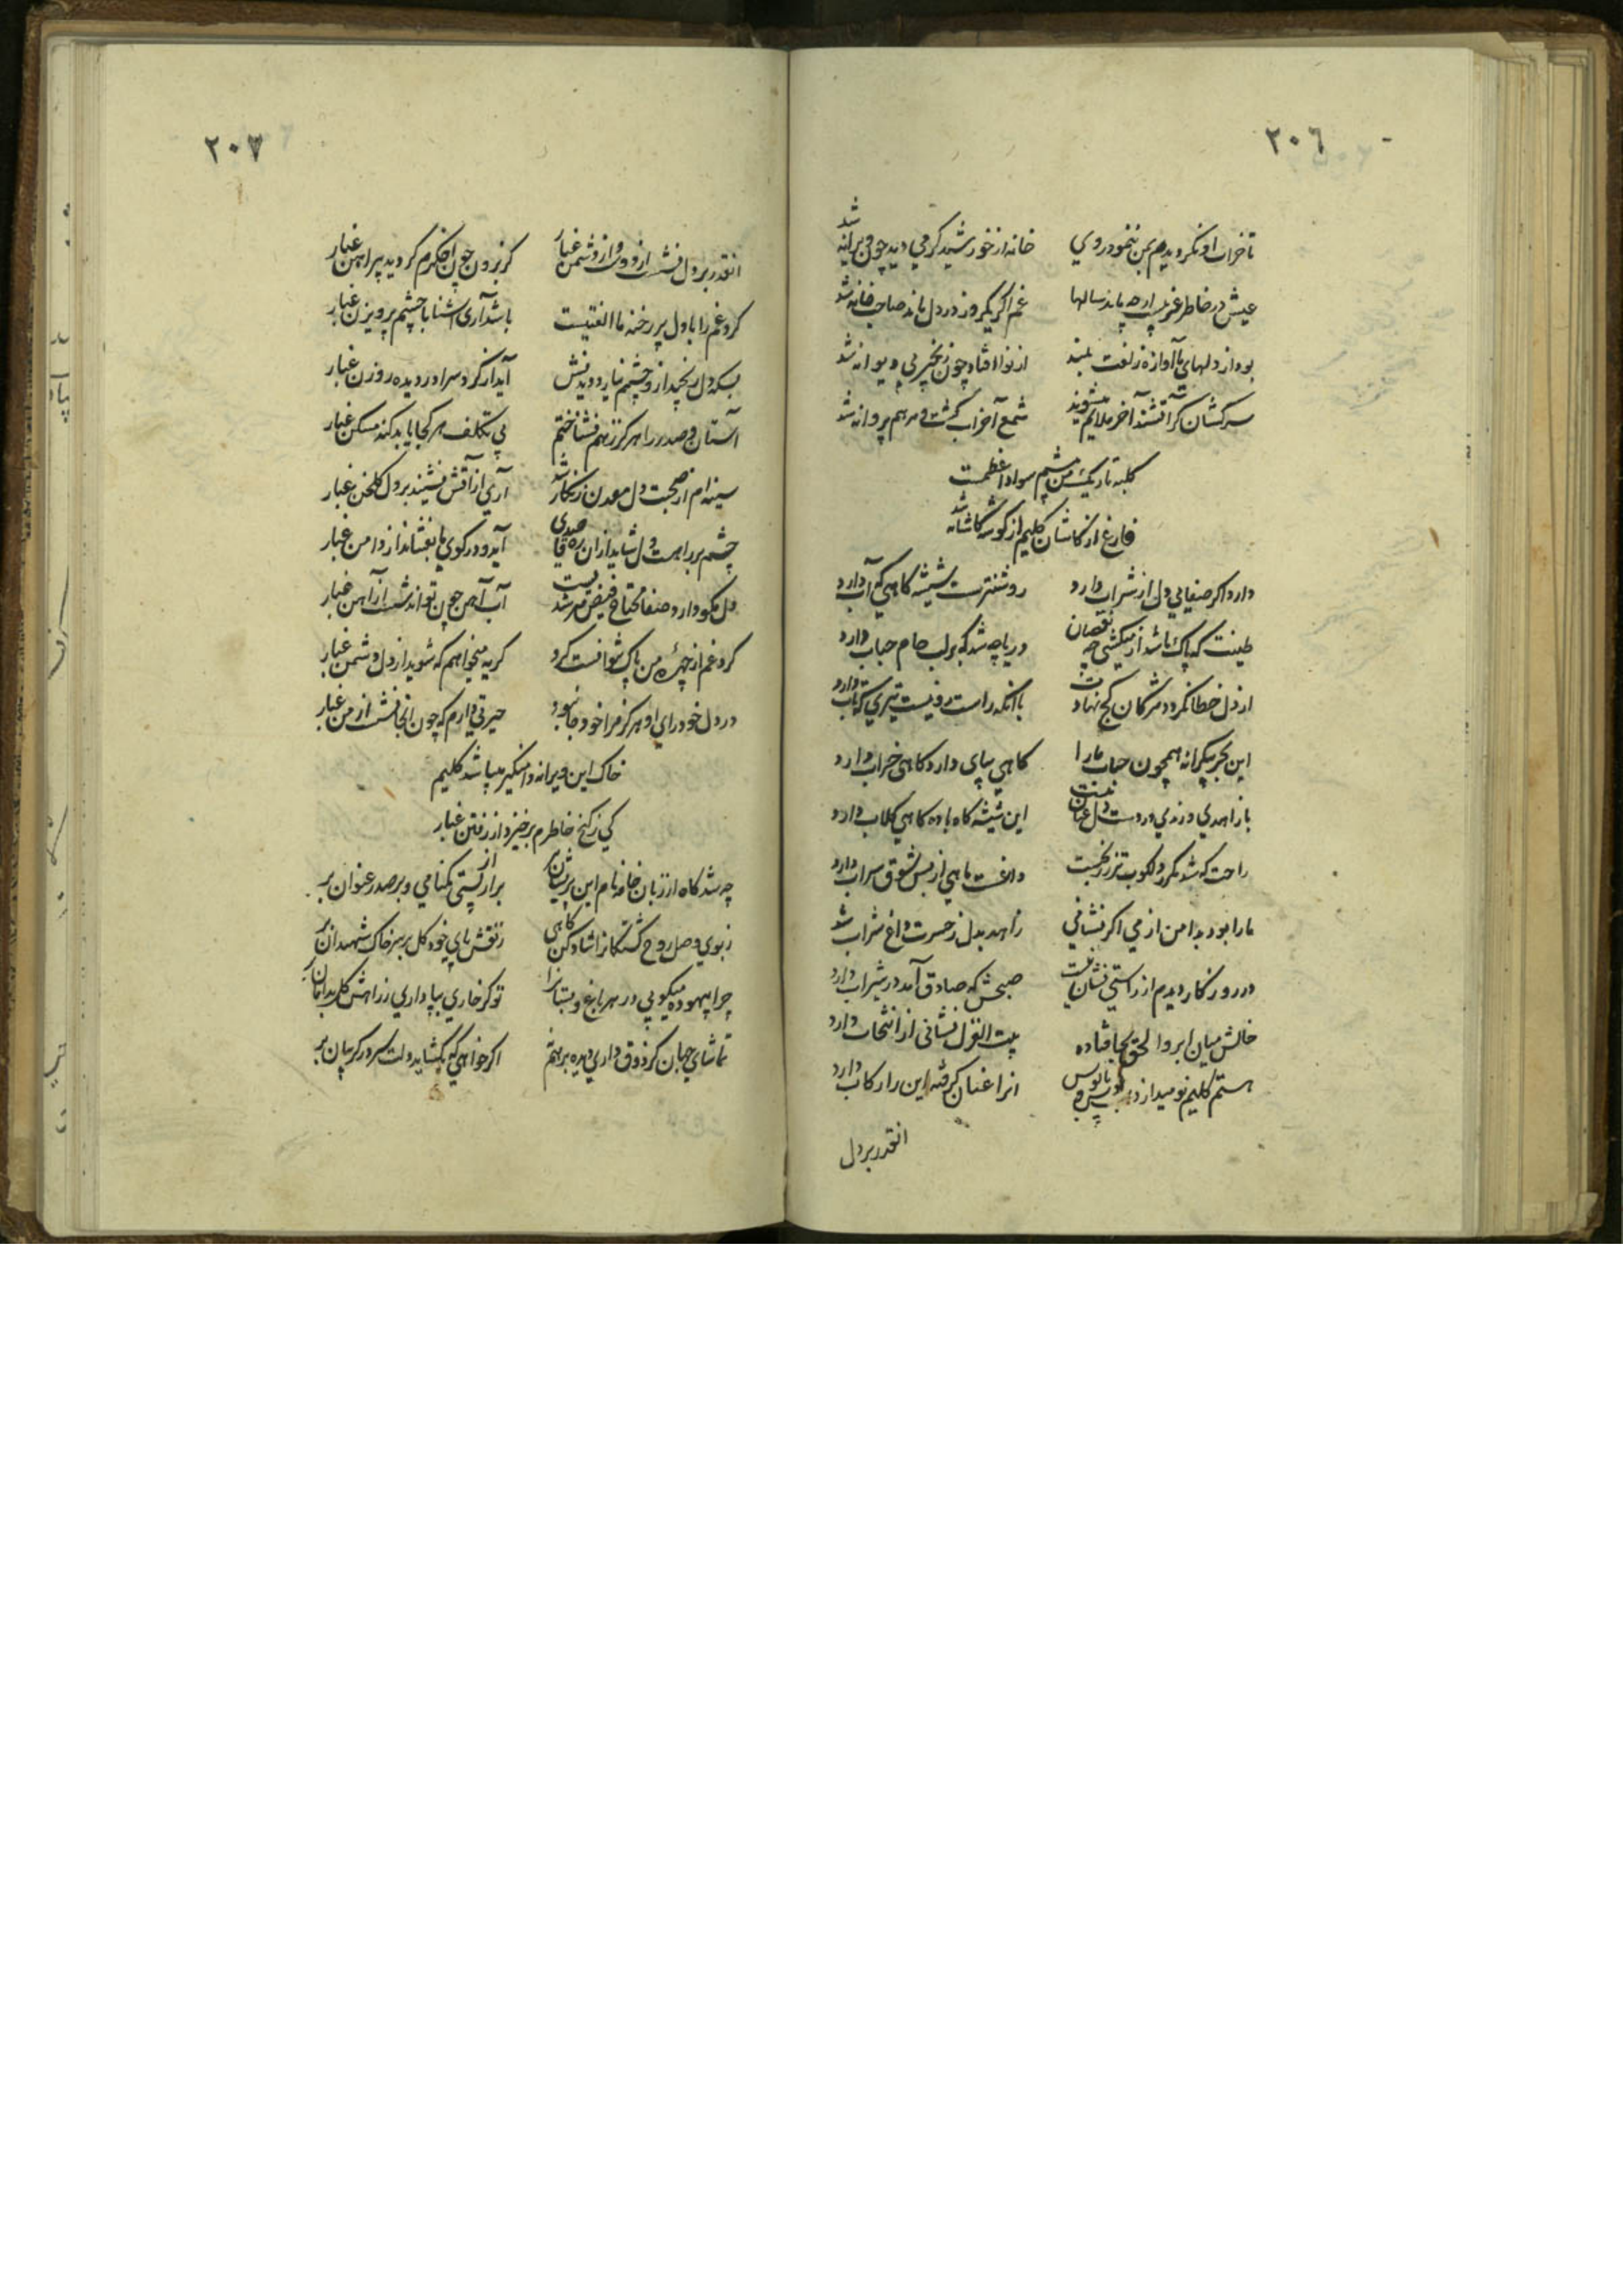 ٢٠٦
تا خراب او نکردیدم بمن ننمود روی خانه از خورشید کرمی دید چون ویرانه شد
عیش در خاطر غریب ار چه پاید سالها غم اکر یکروز در دل ماند صاحب خانه شد
بود از دلهای ما آوازه زلفت بلند از نوا افتاد چون زنجیر بی دیوانه شد
سرکشان کر آتشند آخر ملایم میشوند شمع آخر آب کشت و مرهم پروانه شد
کلبه تاریک من چشم سواد اعظمست
فارغ از کاشان کلیم از کوشه کاشانه شد
دارد اکر صفایی دل از شراب دارد روشنترست شیشه کاهی که آب دارد
طینت که پاک باشد از میکشی چه نقصان دریا چه شد که بر لب جام حباب دارد
از دل خطا نکردد مژکان کج نهادت با آنکه راست رو نیست تیری که تاب دارد
این بحر بیکرانه همچون حباب ما را کاهی بپای دارد کاهی خراب دارد
با زاهدی و رندی در دست دل عنان نیست این شیشه کاه باده کاهی کلاب دارد
راحت که شد مکرر دلکوب تر ز رنجست داغست ماهی از بس شوق سراب دارد
ما را بود بدامن از می اکر نشانی زاهد بدل ز حسرت داغ شراب دارد
در روزکار دیدم از راستی نشان نیست صبحش که صادق آمد در شیر آب دارد
خالش میان ابرو الحق بجا فتاده بیت الغزل نشانی از انتخاب دارد
هستم کلیم نومید از بوس و پای بوس انرا عنان کرفته این را رکاب دارد
انقدر بر دل
٢٠٧
انقدر بر دل نشست از دوست و از دشمن غبار کز برون چون اخکرم کردید پیراهن غبار
کرد غم را با دل پر رخنه ما الفتیست باشد آری اشنا با چشم پرویزن غبار
بسکه دل رنجید ازو چشم نیارد دیدنش آید از کرد سرا در دیده روزن غبار
آستان و صدر را هرکز ز هم نشناختم بی تکلف هر کجا یابد کند مسکن غبار
سینه ام از صحبت دل معدن زنکار شد آری از آتش نشیند بر دل کلخن غبار
چشم بر راهست دل شاید از ان ره قاصدی آید و در کوی ما بفشاند از دامن غبار
دل نکو دارد صفا محتاج فیض مرشد نیست آب آهن چون تواند شست از آهن غبار
کرد غم از چهره من پاک نتوانست کرد کریه میخواهم که شوید از دل دشمن غبار
در دل خود رای او هرکز مرا خود جا نبود حیرتی دارم که چون انجا نشست از من غبار
خاک این ویرانه دامنکیر میباشد کلیم
کی ز کنج خاطرم برخیزد از رفتن غبار
چه شد کاه از زبان خامه نام این پریشان بر برار از پستی کمنامی و بر صدر عنوان بر
ز بوی وصل روح کشتکانرا شاد کن کاهی ز نقش پای خود کل بر سر خاک شهیدان بر
چرا بیهوده میکوبی در هر باغ و بستانرا تو کر خاری بپا داری ز راهش کل بدامان بر
تماشای جهان کر ذوق داری دیده بر هم نه اکر خواهی که بکشاید دلت سر در کریبان بر